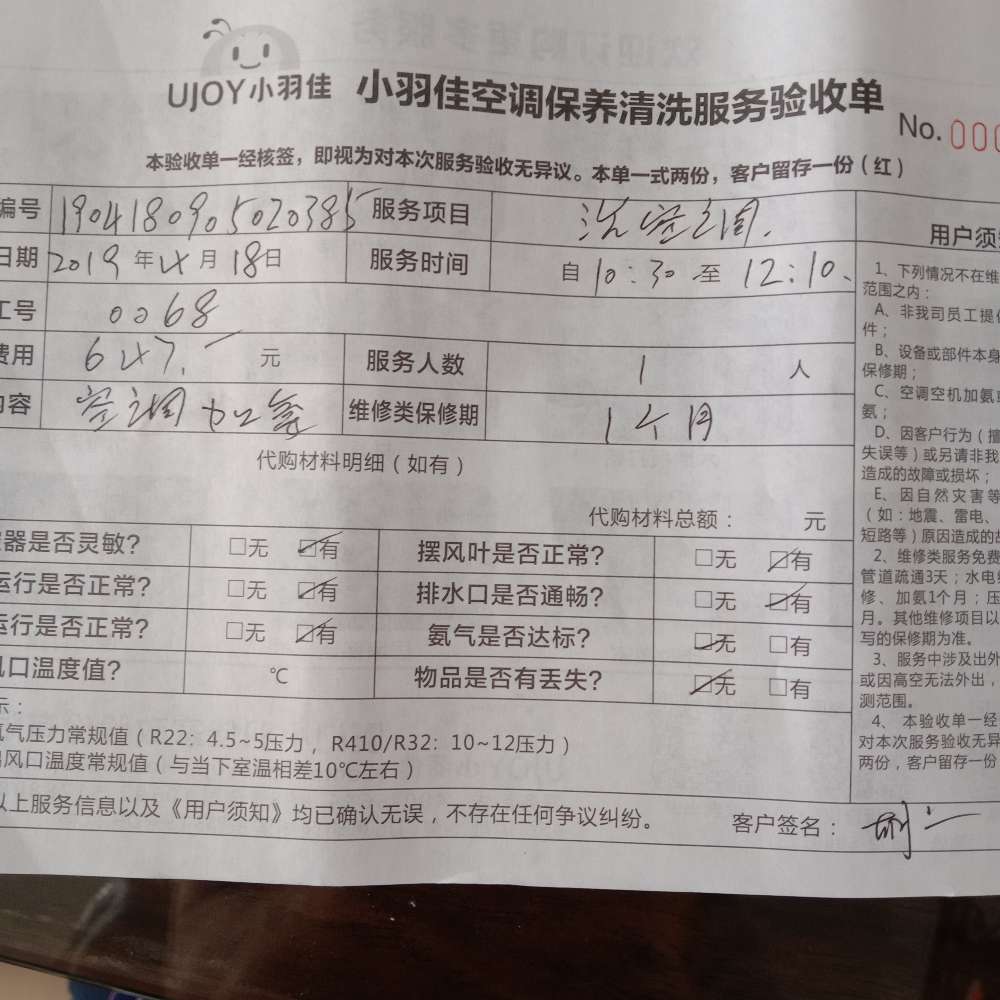 UJOY小羽佳 小羽佳空调保养清洗服务验收单
No. 000
本验收单一经核签，即视为对本次服务验收无异议。本单一式两份，客户留存一份（红）
编号 1904180905020385 服务项目 洗空调.
日期 2019年4月18日 服务时间 自10:30至12:10
工号 0068
费用 647.- 元 服务人数 1 人
内容 空调加氨 维修类保修期 1个月
代购材料明细（如有）
代购材料总额： 元
器是否灵敏? □无 ☑有 摆风叶是否正常? □无 ☑有
运行是否正常? □无 ☑有 排水口是否通畅? □无 ☑有
运行是否正常? □无 ☑有 氨气是否达标? ☑无 □有
风口温度值? ℃ 物品是否有丢失? ☑无 □有
示：
氨气压力常规值（R22：4.5~5压力，R410/R32：10~12压力）
出风口温度常规值（与当下室温相差10℃左右）
以上服务信息以及《用户须知》均已确认无误，不存在任何争议纠纷。 客户签名：
用户须知
1、下列情况不在维
范围之内：
A、非我司员工提供
件；
B、设备或部件本身
保修期；
C、空调空机加氨或
氨；
D、因客户行为（擅
失误等）或另请非我
造成的故障或损坏；
E、因自然灾害等
（如：地震、雷电、
短路等）原因造成的故
2、维修类服务免费
管道疏通3天；水电维
修、加氨1个月；压
月。其他维修项目以
写的保修期为准。
3、服务中涉及出外
或因高空无法外出，
测范围。
4、本验收单一经
对本次服务验收无异
两份，客户留存一份